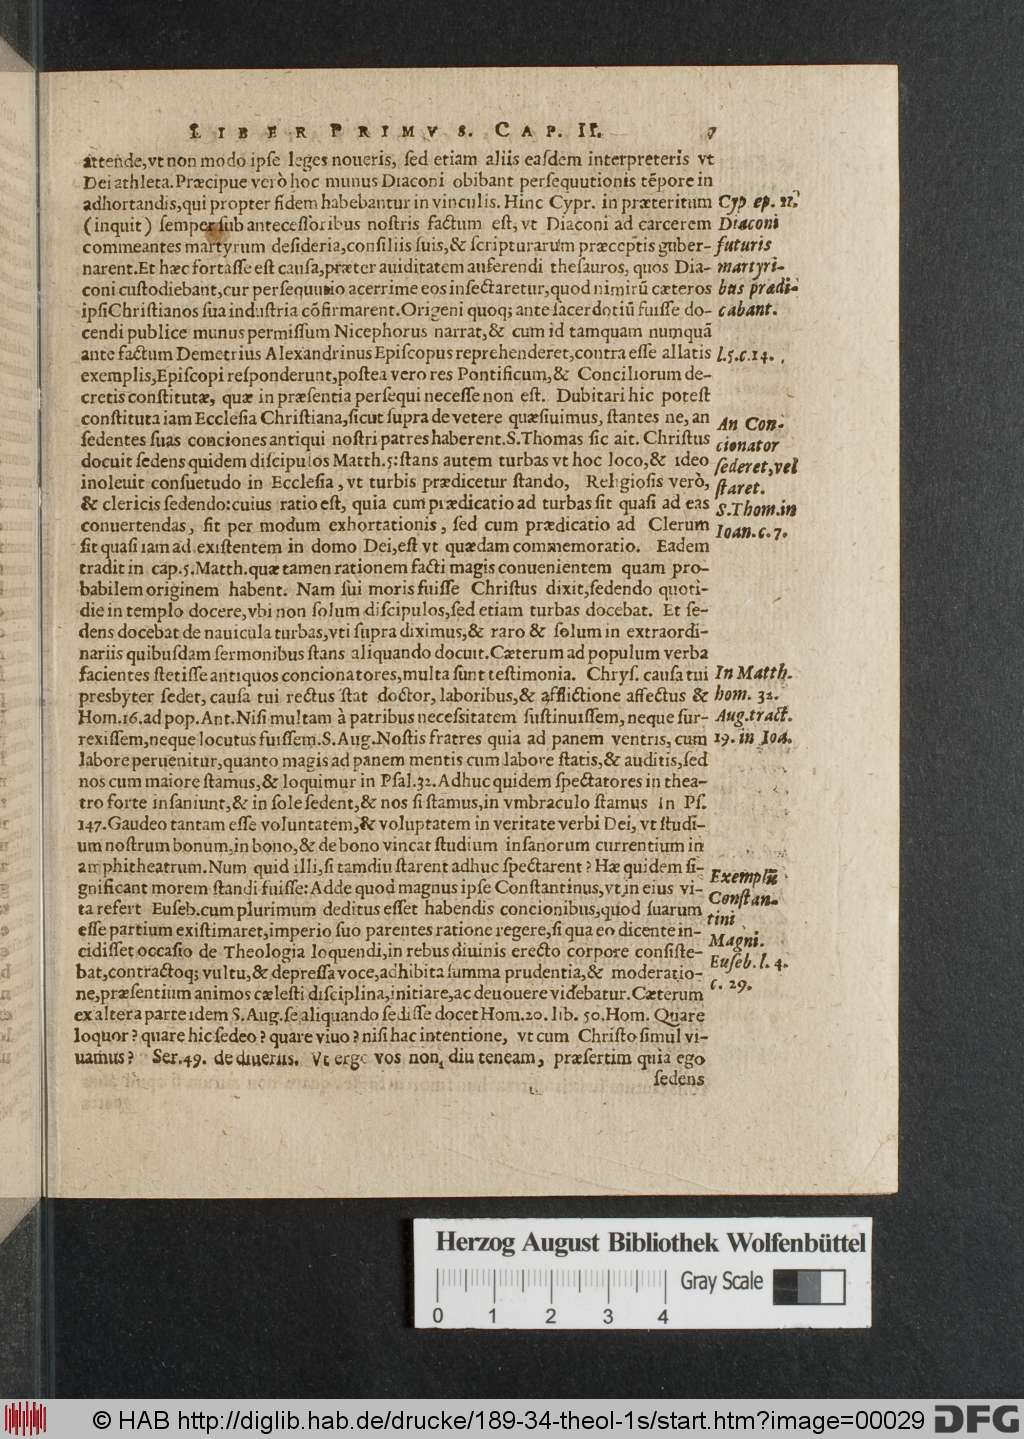 LIBER PRIMVS. CAP. II. 7
attende,vt non modo ipſe leges noueris, ſed etiam aliis eaſdem interpreteris vt
Dei athleta.Præcipue verò hoc munus Diaconi obibant perſequutionis tẽpore in
adhortandis,qui propter fidem habebantur in vinculis. Hinc Cypr. in præteritum
(inquit) ſemper ſub anteceſſoribus noſtris factum eſt, vt Diaconi ad carcerem
commeantes martyrum deſideria,conſiliis ſuis,& ſcripturarum præceptis guber-
narent.Et hæc fortaſſe eſt cauſa,præter auiditatem auferendi theſauros, quos Dia-
coni cuſtodiebant,cur perſequutio acerrime eos inſectaretur,quod nimirũ cæteros
ipſi Chriſtianos ſua induſtria cõfirmarent.Origeni quoq; ante ſacerdotiũ fuiſſe do-
cendi publice munus permiſſum Nicephorus narrat,& cum id tamquam numquã
ante factum Demetrius Alexandrinus Epiſcopus reprehenderet,contra eſſe allatis
exemplis,Epiſcopi reſponderunt,poſtea vero res Pontificum,& Conciliorum de-
cretis conſtitutæ, quæ in præſentia perſequi neceſſe non eſt. Dubitari hic poteſt
conſtituta iam Eccleſia Chriſtiana,ſicut ſupra de vetere quæſiuimus, ſtantes ne, an
ſedentes ſuas conciones antiqui noſtri patres haberent.S.Thomas ſic ait. Chriſtus
docuit ſedens quidem diſcipulos Matth.5:ſtans autem turbas vt hoc loco,& ideo
inoleuit conſuetudo in Eccleſia, vt turbis prædicetur ſtando, Religioſis verò,
& clericis ſedendo:cuius ratio eſt, quia cum prædicatio ad turbas ſit quaſi ad eas
conuertendas, fit per modum exhortationis, ſed cum prædicatio ad Clerum
fit quaſi iam ad exiſtentem in domo Dei,eſt vt quædam commemoratio. Eadem
tradit in cap.5.Matth.quæ tamen rationem facti magis conuenientem quam pro-
babilem originem habent. Nam ſui moris fuiſſe Chriſtus dixit,ſedendo quoti-
die in templo docere,vbi non ſolum diſcipulos,ſed etiam turbas docebat. Et ſe-
dens docebat de nauicula turbas,vti ſupra diximus,& raro & ſolum in extraordi-
nariis quibuſdam ſermonibus ſtans aliquando docuit.Cæterum ad populum verba
facientes ſtetiſſe antiquos concionatores,multa ſunt teſtimonia. Chryſ. cauſa tui
presbyter ſedet, cauſa tui rectus ſtat doctor, laboribus,& afflictione affectus &
Hom.16.ad pop.Ant.Niſi multam à patribus neceſsitatem ſuſtinuiſſem, neque ſur-
rexiſſem,neque locutus fuiſſem.S.Aug.Noſtis fratres quia ad panem ventris, cum
labore peruenitur,quanto magis ad panem mentis cum labore ſtatis,& auditis,ſed
nos cum maiore ſtamus,& loquimur in Pſal.32.Adhuc quidem ſpectatores in thea-
tro forte inſaniunt,& in ſole ſedent,& nos ſi ſtamus,in vmbraculo ſtamus in Pſ.
147.Gaudeo tantam eſſe voluntatem,& voluptatem in veritate verbi Dei, vt ſtudi-
um noſtrum bonum,in bono,& de bono vincat ſtudium inſanorum currentium in
amphitheatrum.Num quid illi,ſi tamdiu ſtarent adhuc ſpectarent? Hæ quidem ſi-
gnificant morem ſtandi fuiſſe:Adde quod magnus ipſe Conſtantinus,vt in eius vi-
ta refert Euſeb.cum plurimum deditus eſſet habendis concionibus,quod ſuarum
eſſe partium exiſtimaret,imperio ſuo parentes ratione regere,ſi qua eo dicente in-
cidiſſet occaſio de Theologia loquendi,in rebus diuinis erecto corpore conſiſte-
bat,contractoq; vultu,& depreſſa voce,adhibita ſumma prudentia,& moderatio-
ne,præſentium animos cæleſti diſciplina,initiare,ac deuouere videbatur.Cæterum
ex altera parte idem S.Aug.ſe aliquando ſediſſe docet Hom.20. lib. 50.Hom. Quare
loquor? quare hic ſedeo? quare viuo? niſi hac intentione, vt cum Chriſto ſimul vi-
uamus? Ser.49. de diuerſis. Vt ergo vos non, diu teneam, præſertim quia ego
ſedens
Cyp ep. 37.
Diaconi
futuris
martyri-
bus prædi-
cabant.
l.5.c.14.
An Con-
cionator
ſederet,vel
ſtaret.
S.Thom.in
Ioan.c.7.
In Matth.
hom. 32.
Aug.tract.
19. in Ioa.
Exemplũ
Conſtan-
tini
Magni.
Euſeb. l. 4.
c. 29.
Herzog August Bibliothek Wolfenbüttel
Gray Scale
0 1 2 3 4
© HAB http://diglib.hab.de/drucke/189-34-theol-1s/start.htm?image=00029 DFG